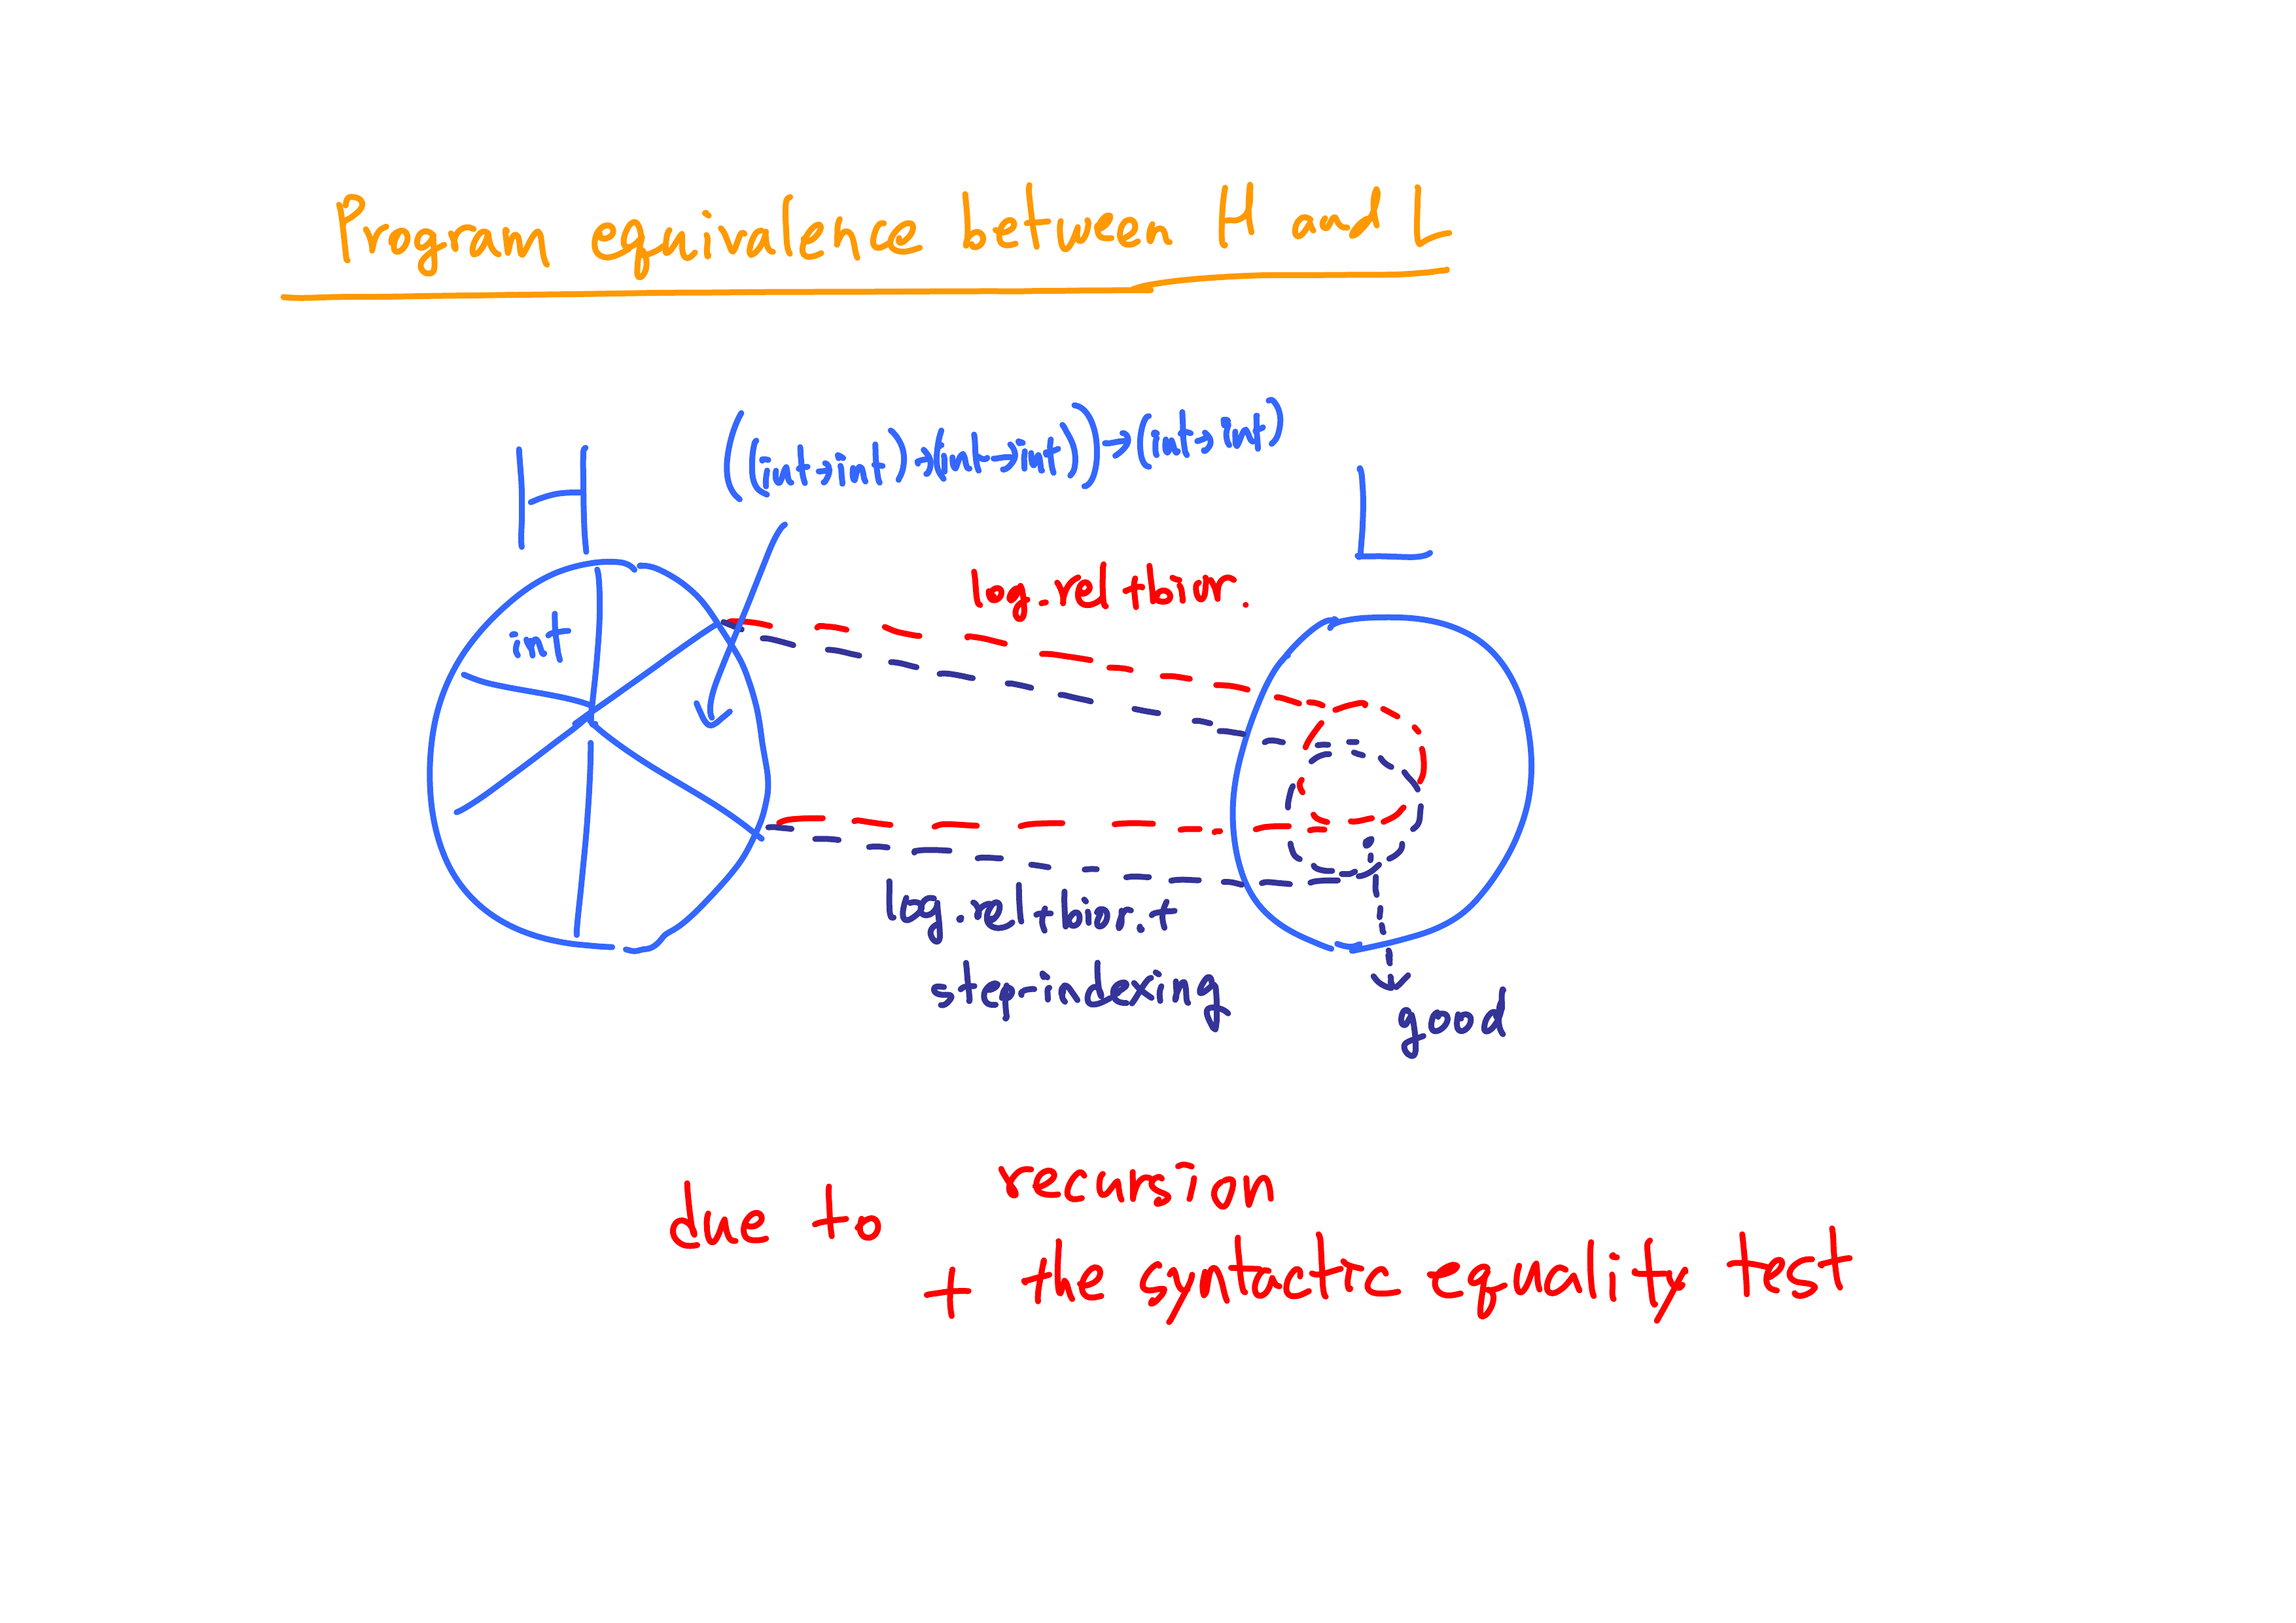 Program equivalence between H and L
((int→int)→(int→int))→(int→int)
H
L
log.rel + bior.
int
log.rel + bior. +
step-indexing
good
due to recursion
+ the syntactic equality test